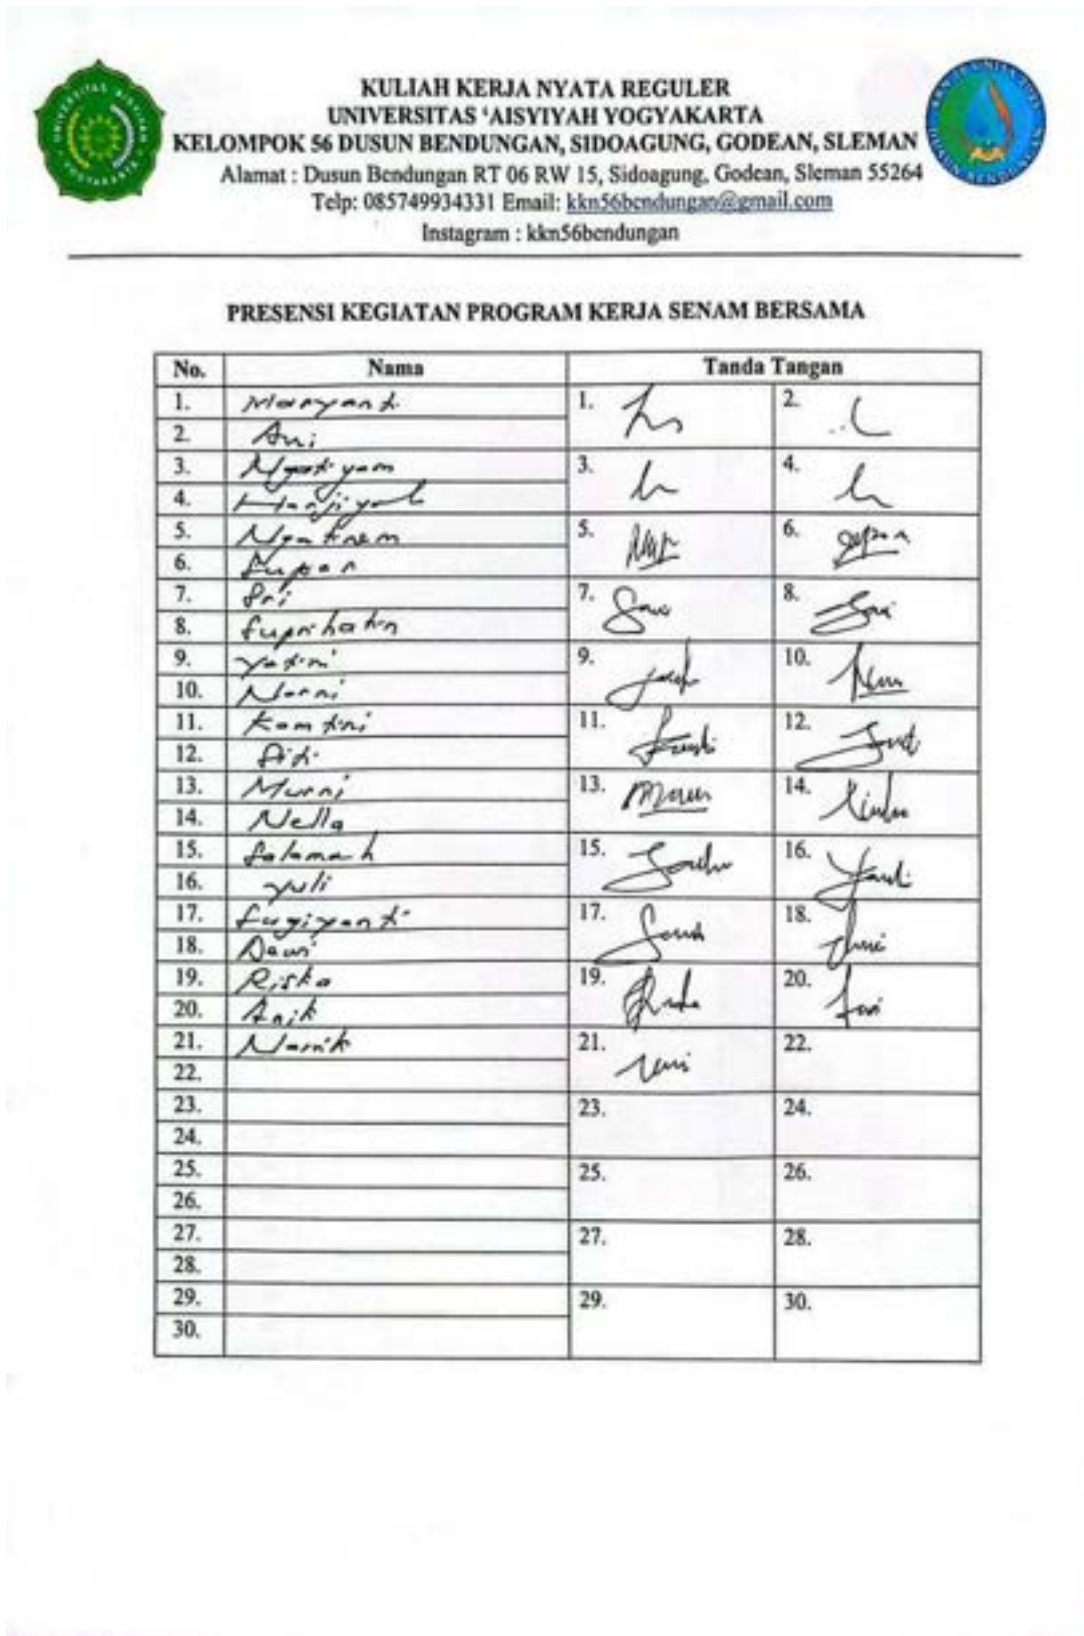 KULIAH KERJA NYATA REGULER
UNIVERSITAS ‘AISYIYAH YOGYAKARTA
KELOMPOK 56 DUSUN BENDUNGAN, SIDOAGUNG, GODEAN, SLEMAN
Alamat : Dusun Bendungan RT 06 RW 15, Sidoagung, Godean, Sleman 55264
Telp: 085749934331 Email: kkn56bendungan@gmail.com
Instagram : kkn56bendungan
PRESENSI KEGIATAN PROGRAM KERJA SENAM BERSAMA
No. Nama Tanda Tangan
1. Maryanti 1. 2.
2. Ani
3. Ngatiyam 3. 4.
4.
5. Ngatinem 5. 6.
6. Supar
7. Sri 7. 8.
8. Suprihatin
9. Yatini 9. 10.
10. Narni
11. Kamtini 11. 12.
12. Siti
13. Murni 13. 14.
14. Nella
15. Salamah 15. 16.
16. Yuli
17. Sugiyanti 17. 18.
18. Dewi
19. Riska 19. 20.
20. Anik
21. Nanik 21. 22.
22.
23. 23. 24.
24.
25. 25. 26.
26.
27. 27. 28.
28.
29. 29. 30.
30.